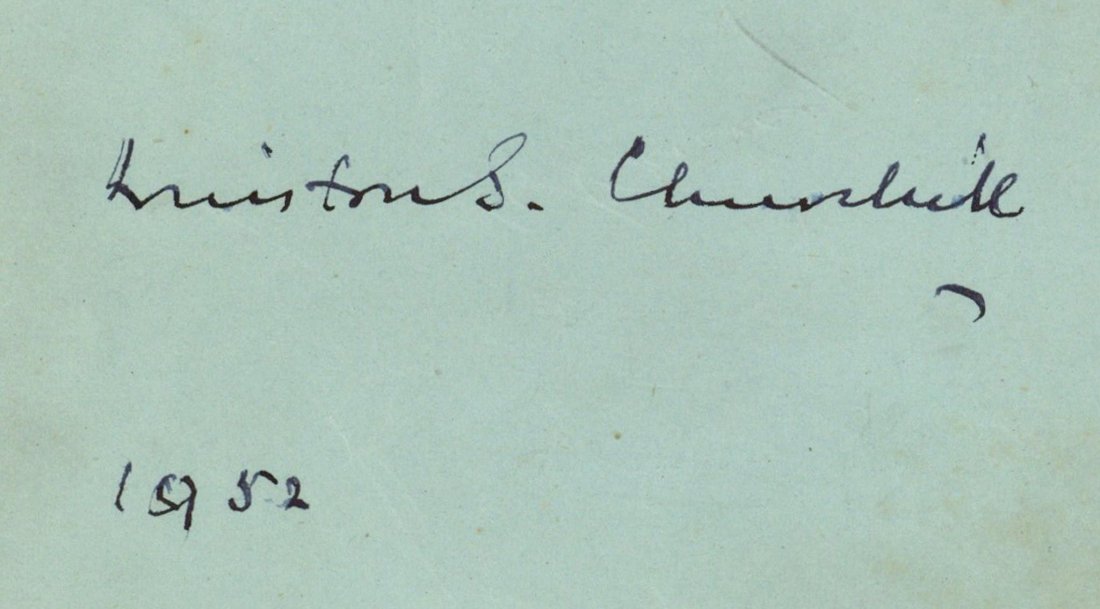 Winston S. Churchill
1952